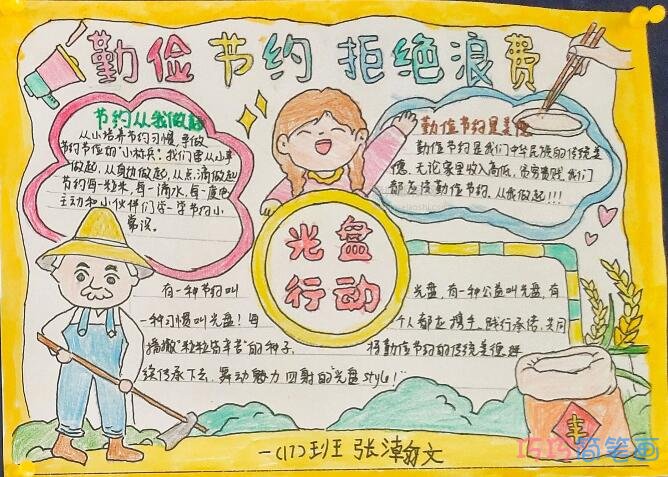 勤俭节约 拒绝浪费
节约从我做起
从小培养节约习惯,争做
节约节俭的"小标兵:我们要从小事
做起,从身边做起,从点滴做起
节约每一粒米,每一滴水,每一度电
主动和小伙伴们学一学节约小
常识。
勤俭节约是美德
勤俭节约是我们中华民族的传统美
德,无论家里收入高低,贫穷富贵,我们
都应该勤俭节约。从我做起!!!
光盘
行动
有一种节约叫光盘,有一种公益叫光盘,有
一种习惯叫光盘!每个人都应携手,践行承传,共同
播撒"粒粒皆辛苦"的种子,将勤俭节约的传统美德延
续传承下去,舞动魅力四射的"光盘style!"
丰
一(17)班 张瀚文
1516简笔画